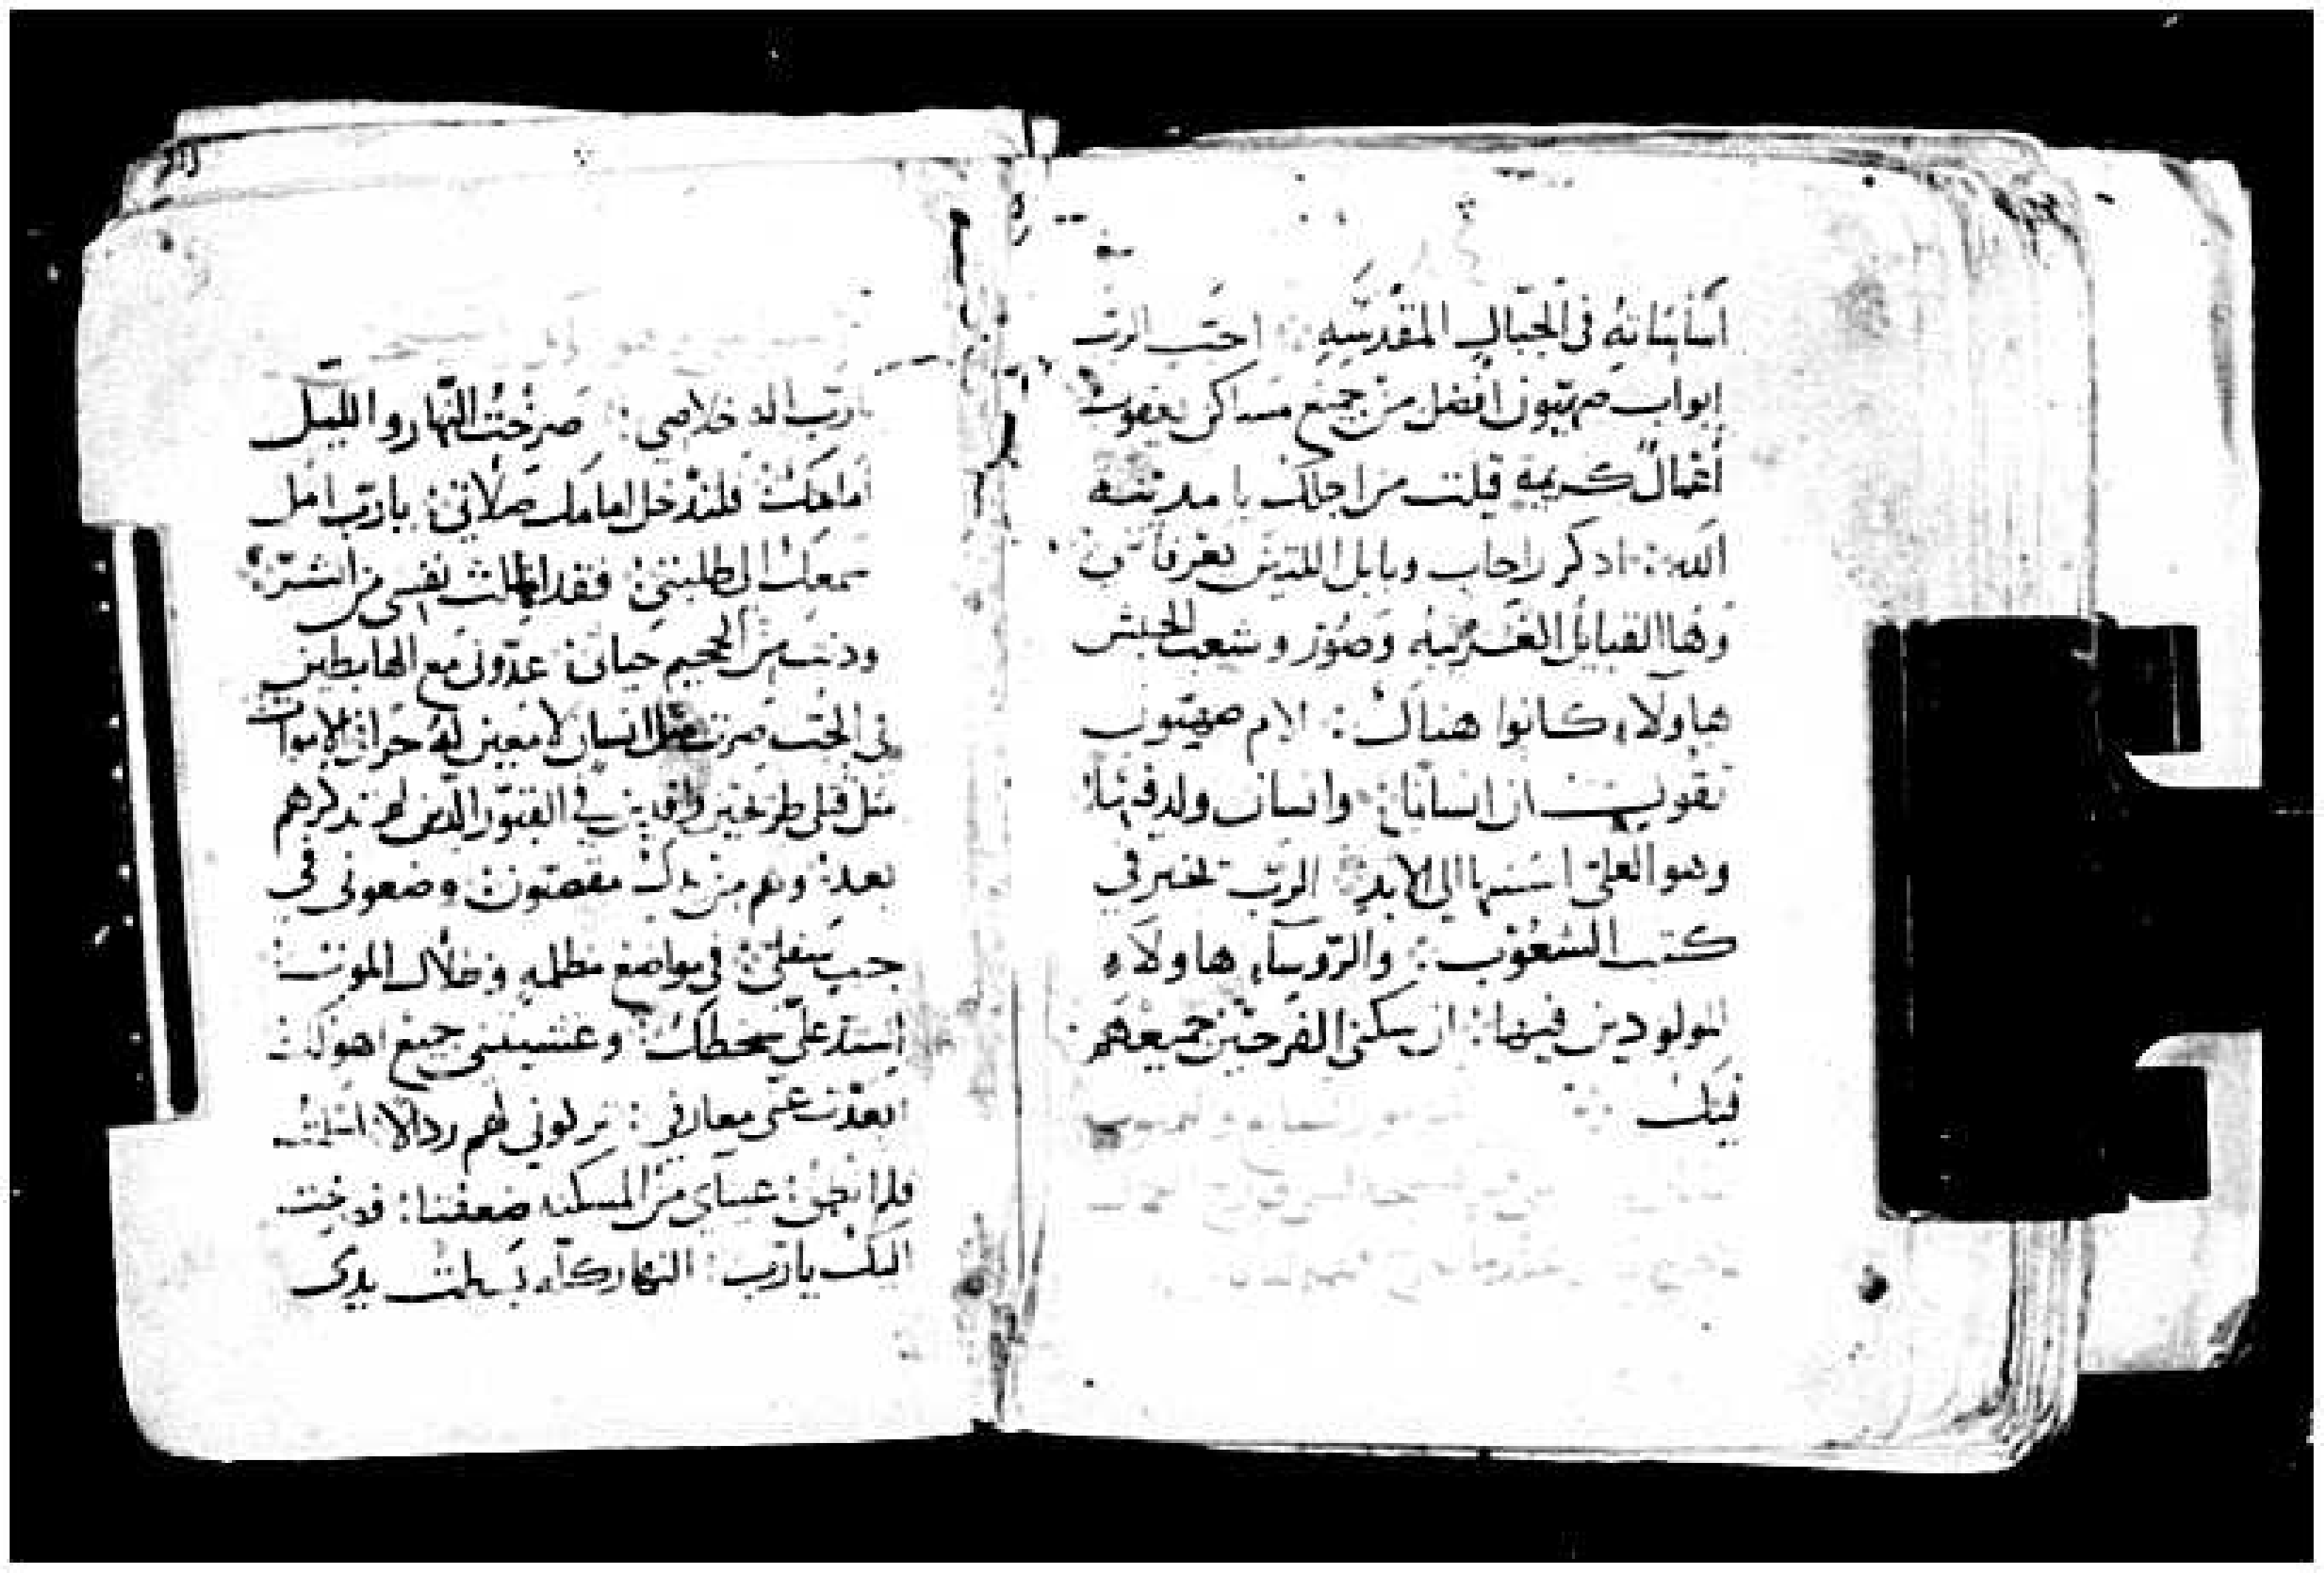 أساساته في الجبال المقدسه : احب الرب
ابواب صهيون افضل من جميع مساكن يعقوب
أعمال كريمه قيلت من اجلك يا مدينة
الله : اذكر راحاب وبابل اللذين يعرفانني
وهاالقبايل الغريبه وصور وشعب الحبش
هاولاء كانوا هناك : الام صهيون
تقول ان انسانا : وانسان ولد فيها
وهو العلي اسسها الي الابد : الرب يخبر في
كتب الشعوب : والروساء هاولاء
المولودين فيها : ان سكني الفرحين جميعهم
فيك
يا رب اله خلاصي : صرخت النهار والليل
امامك فلتدخل امامك صلاتي : يارب امل
سمعك الى طلبتي : فقد امتلت نفسي من الشر
ودنت من الجحيم حياتي : عدوني مع الهابطين
في الجب صرت مثل انسان لا معين له حرا في الاموات
مثل قتلي طريحين راقدين في القبور الذين لم تذكرهم
بعد : وهم من يدك مقصون : وضعوني في
جب سفلي : في مواضع مظلمه وظلال الموت :
اشتد علي سخطك : وغشيتني جميع اهوالك
ابعدت عني معارفي : تركوني لهم رذالا : اسلمت
فلم انجي : عيناي من المسكنه ضعفتا : قد صرخت
اليك يارب : النهار كله بسطت يدي